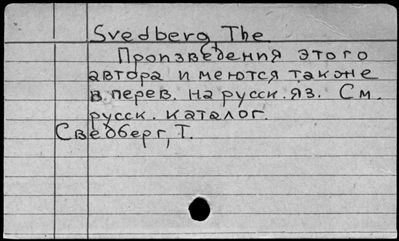 Svedberg The
Произведения этого
автора имеются также
в перев. на русск. яз. См.
русск. каталог.
Сведберг, Т.